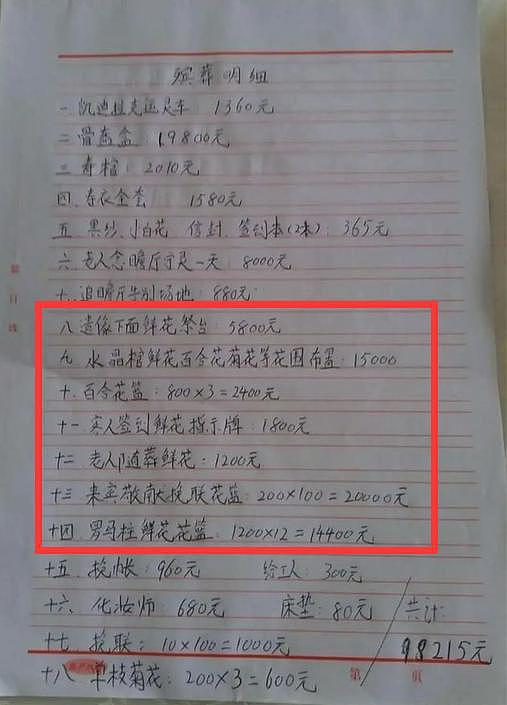 殡葬明细
一.凯迪拉克运灵车:1360元
二.骨灰盒:19800元
三.寿棺:2010元
四.寿衣全套 1580元
五.黑纱.小白花 信封.签到本(2本):365元
六.老人念瞻厅守灵一天:8000元
七.追瞻厅告别场地:880元
八.遗像下面鲜花祭台:5800元
九.水晶棺鲜花百合花菊花等花围布置:15000
十.百合花篮:800×3=2400元
十一.来人签到鲜花指示牌:1800元
十二.老人随葬鲜花:1200元
十三.来宾敬献挽联花篮:200×100=20000元
十四.罗马柱鲜花花篮:1200×12=14400元
十五.挽帐:960元 给工人:300元
十六.化妆师:680元 床垫:80元 共计:
十七.挽联:10×100=1000元 98215元
十八.单枝菊花:200×3=600元
第 页
装订线